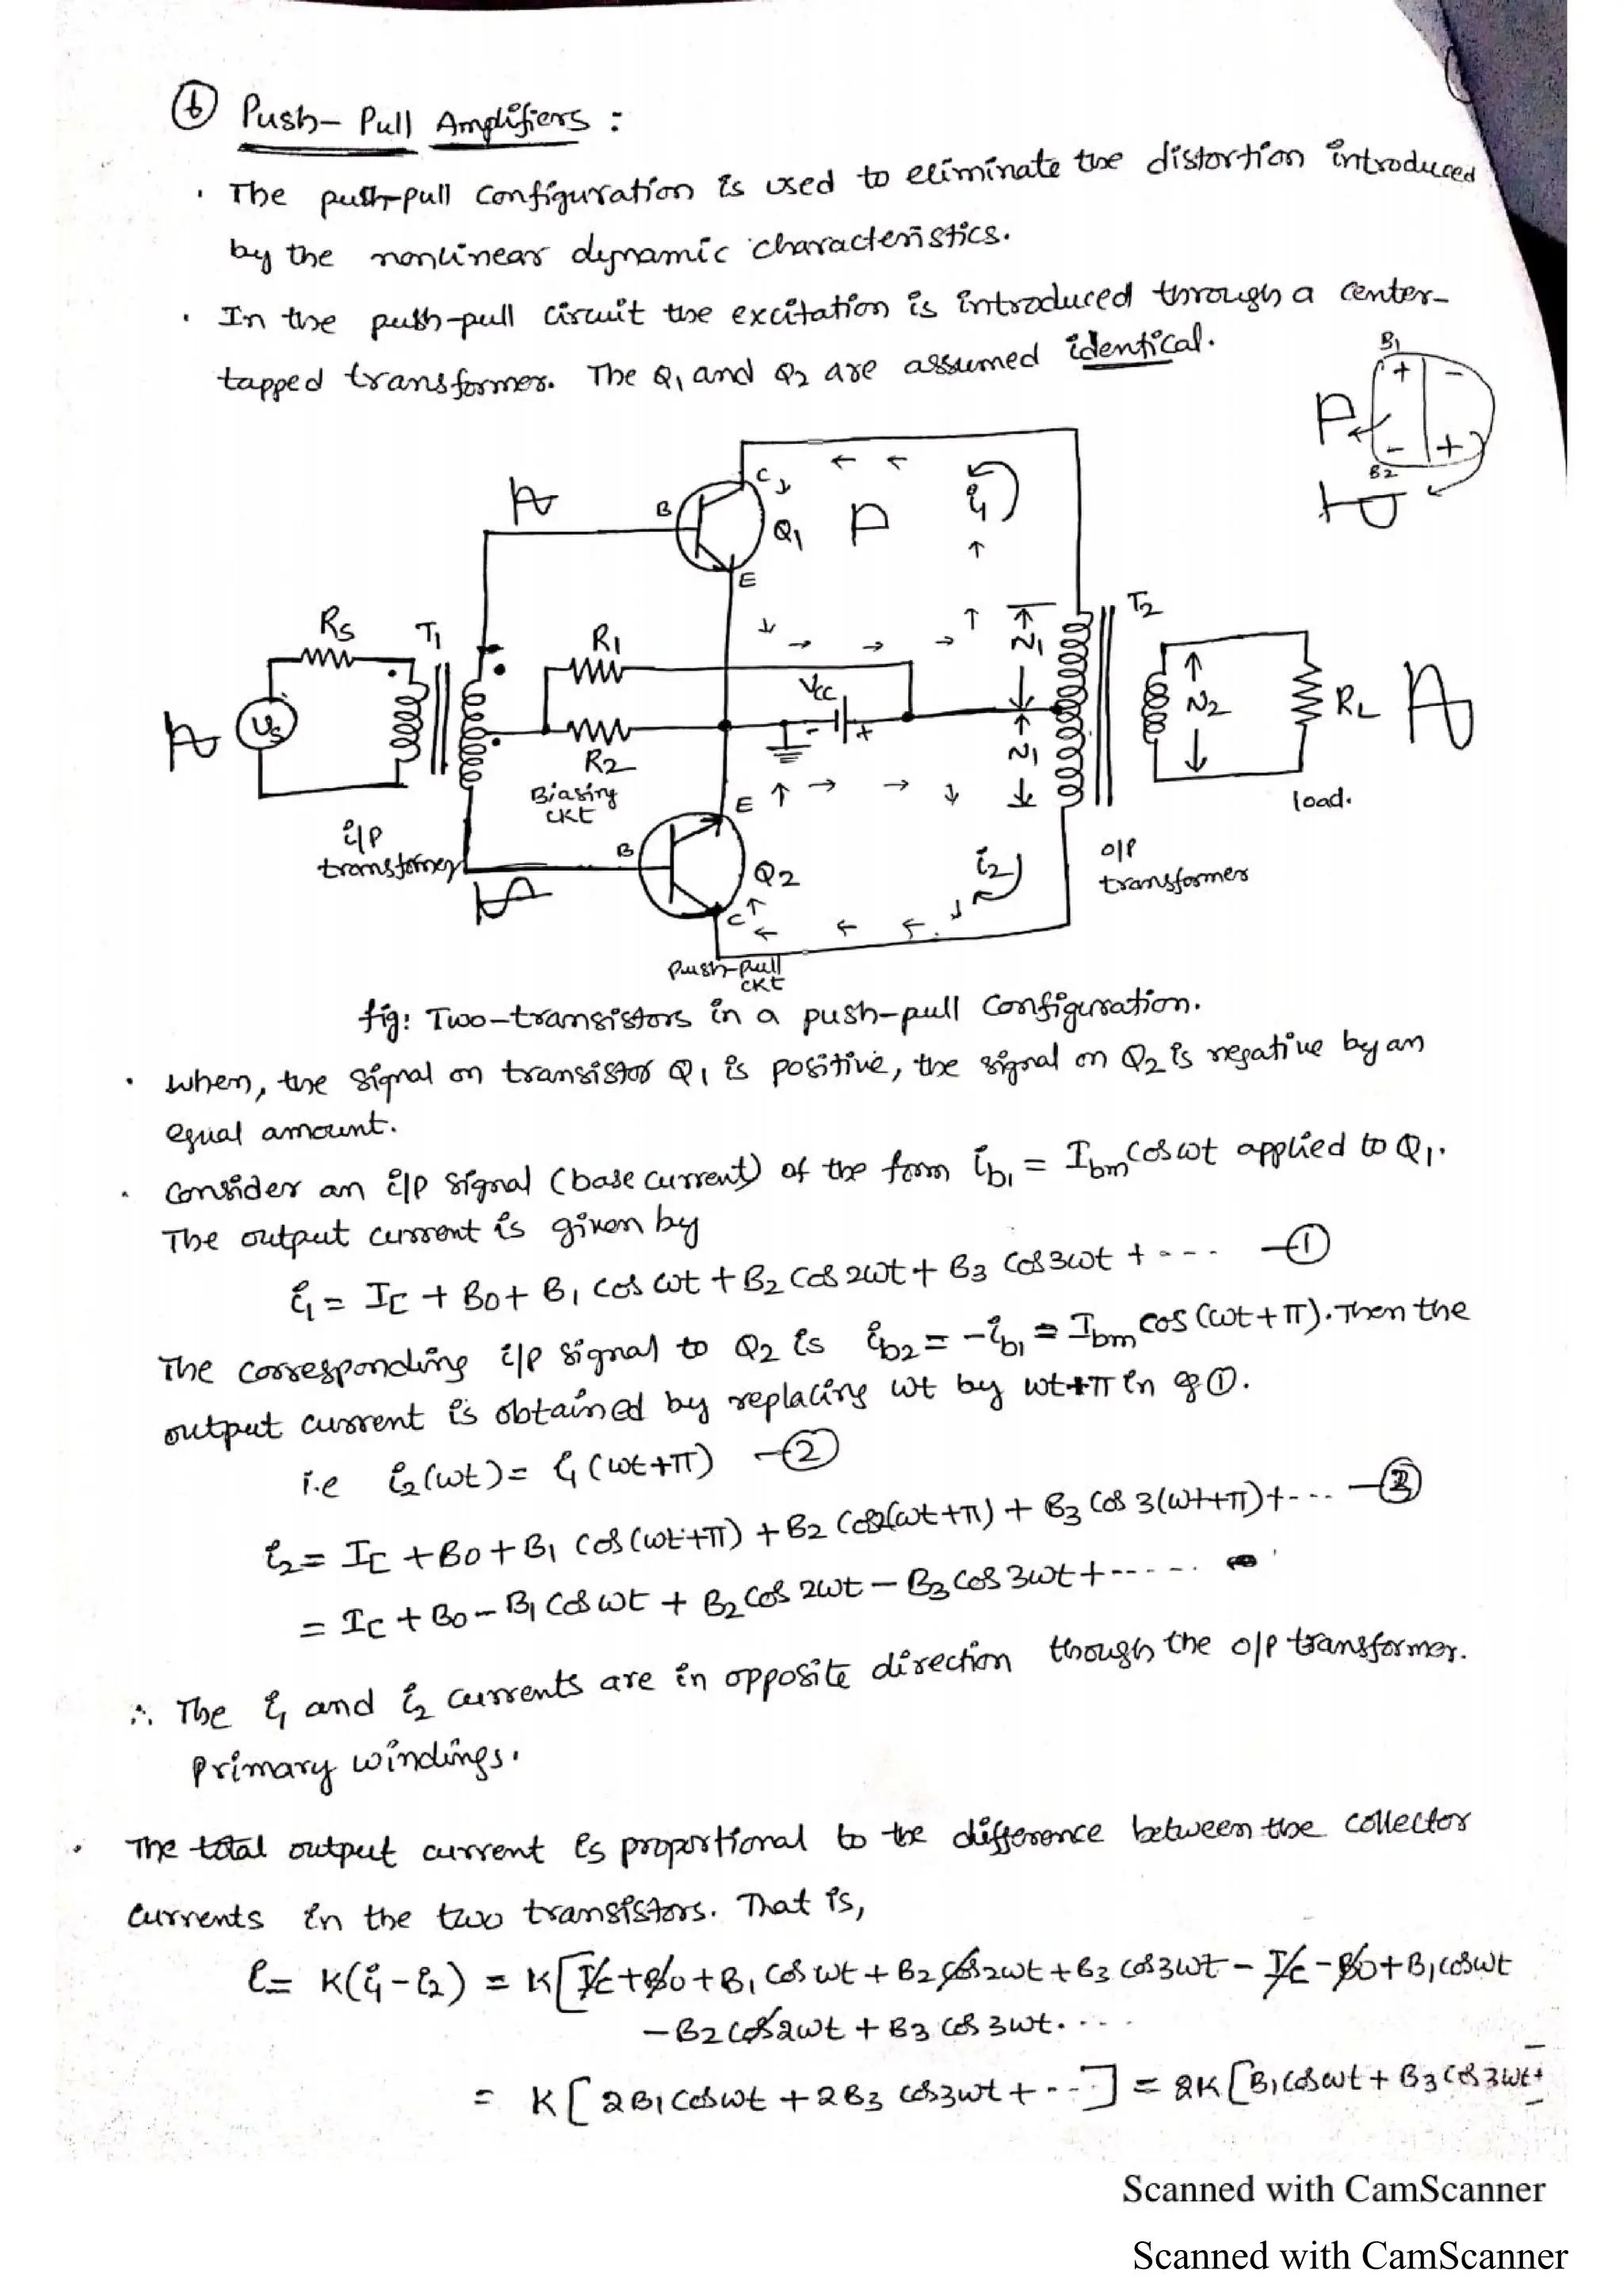 ⑥ Push-Pull Amplifiers :
· The push-pull configuration is used to eliminate the distortion introduced
by the nonlinear dynamic characteristics.
· In the push-pull circuit the excitation is introduced through a center-
tapped transformer. The Q1 and Q2 are assumed identical.
B1
+ -
- +
B2
C
B
Q1
i1
E
Rs
T1
R1
N1
T2
Vs
Vcc
- +
N2
RL
R2
N1
Biasing
ckt
E
load.
i/p
transformer
B
Q2
i2
o/p
transformer
C
Push-pull
ckt
fig: Two-transistors in a push-pull configuration.
· when, the signal on transistor Q1 is positive, the signal on Q2 is negative by an
equal amount.
· consider an i/p signal (base current) of the form ib1 = Ibm cos ωt applied to Q1.
The output current is given by
i1 = IC + B0 + B1 cos ωt + B2 cos 2ωt + B3 cos 3ωt + ---- —①
The corresponding i/p signal to Q2 is ib2 = -ib1 = Ibm cos (ωt + π). Then the
output current is obtained by replacing ωt by ωt+π in ①.
i.e i2(ωt) = i1(ωt+π) —②
i2 = IC + B0 + B1 cos(ωt+π) + B2 cos2(ωt+π) + B3 cos 3(ωt+π)+---- —③
= IC + B0 - B1 cos ωt + B2 cos 2ωt - B3 cos 3ωt + ------
∴ The i1 and i2 currents are in opposite direction though the o/p transformer.
primary windings.
· The total output current is proportional to the difference between the collector
currents in the two transistors. That is,
i = K(i1 - i2) = K[IC + B0 + B1 cos ωt + B2 cos 2ωt + B3 cos 3ωt - IC - B0 + B1 cos ωt
- B2 cos 2ωt + B3 cos 3ωt. ...
= K [2B1 cos ωt + 2B3 cos 3ωt + ---] = 2K [B1 cos ωt + B3 cos 3ωt +
Scanned with CamScanner
Scanned with CamScanner